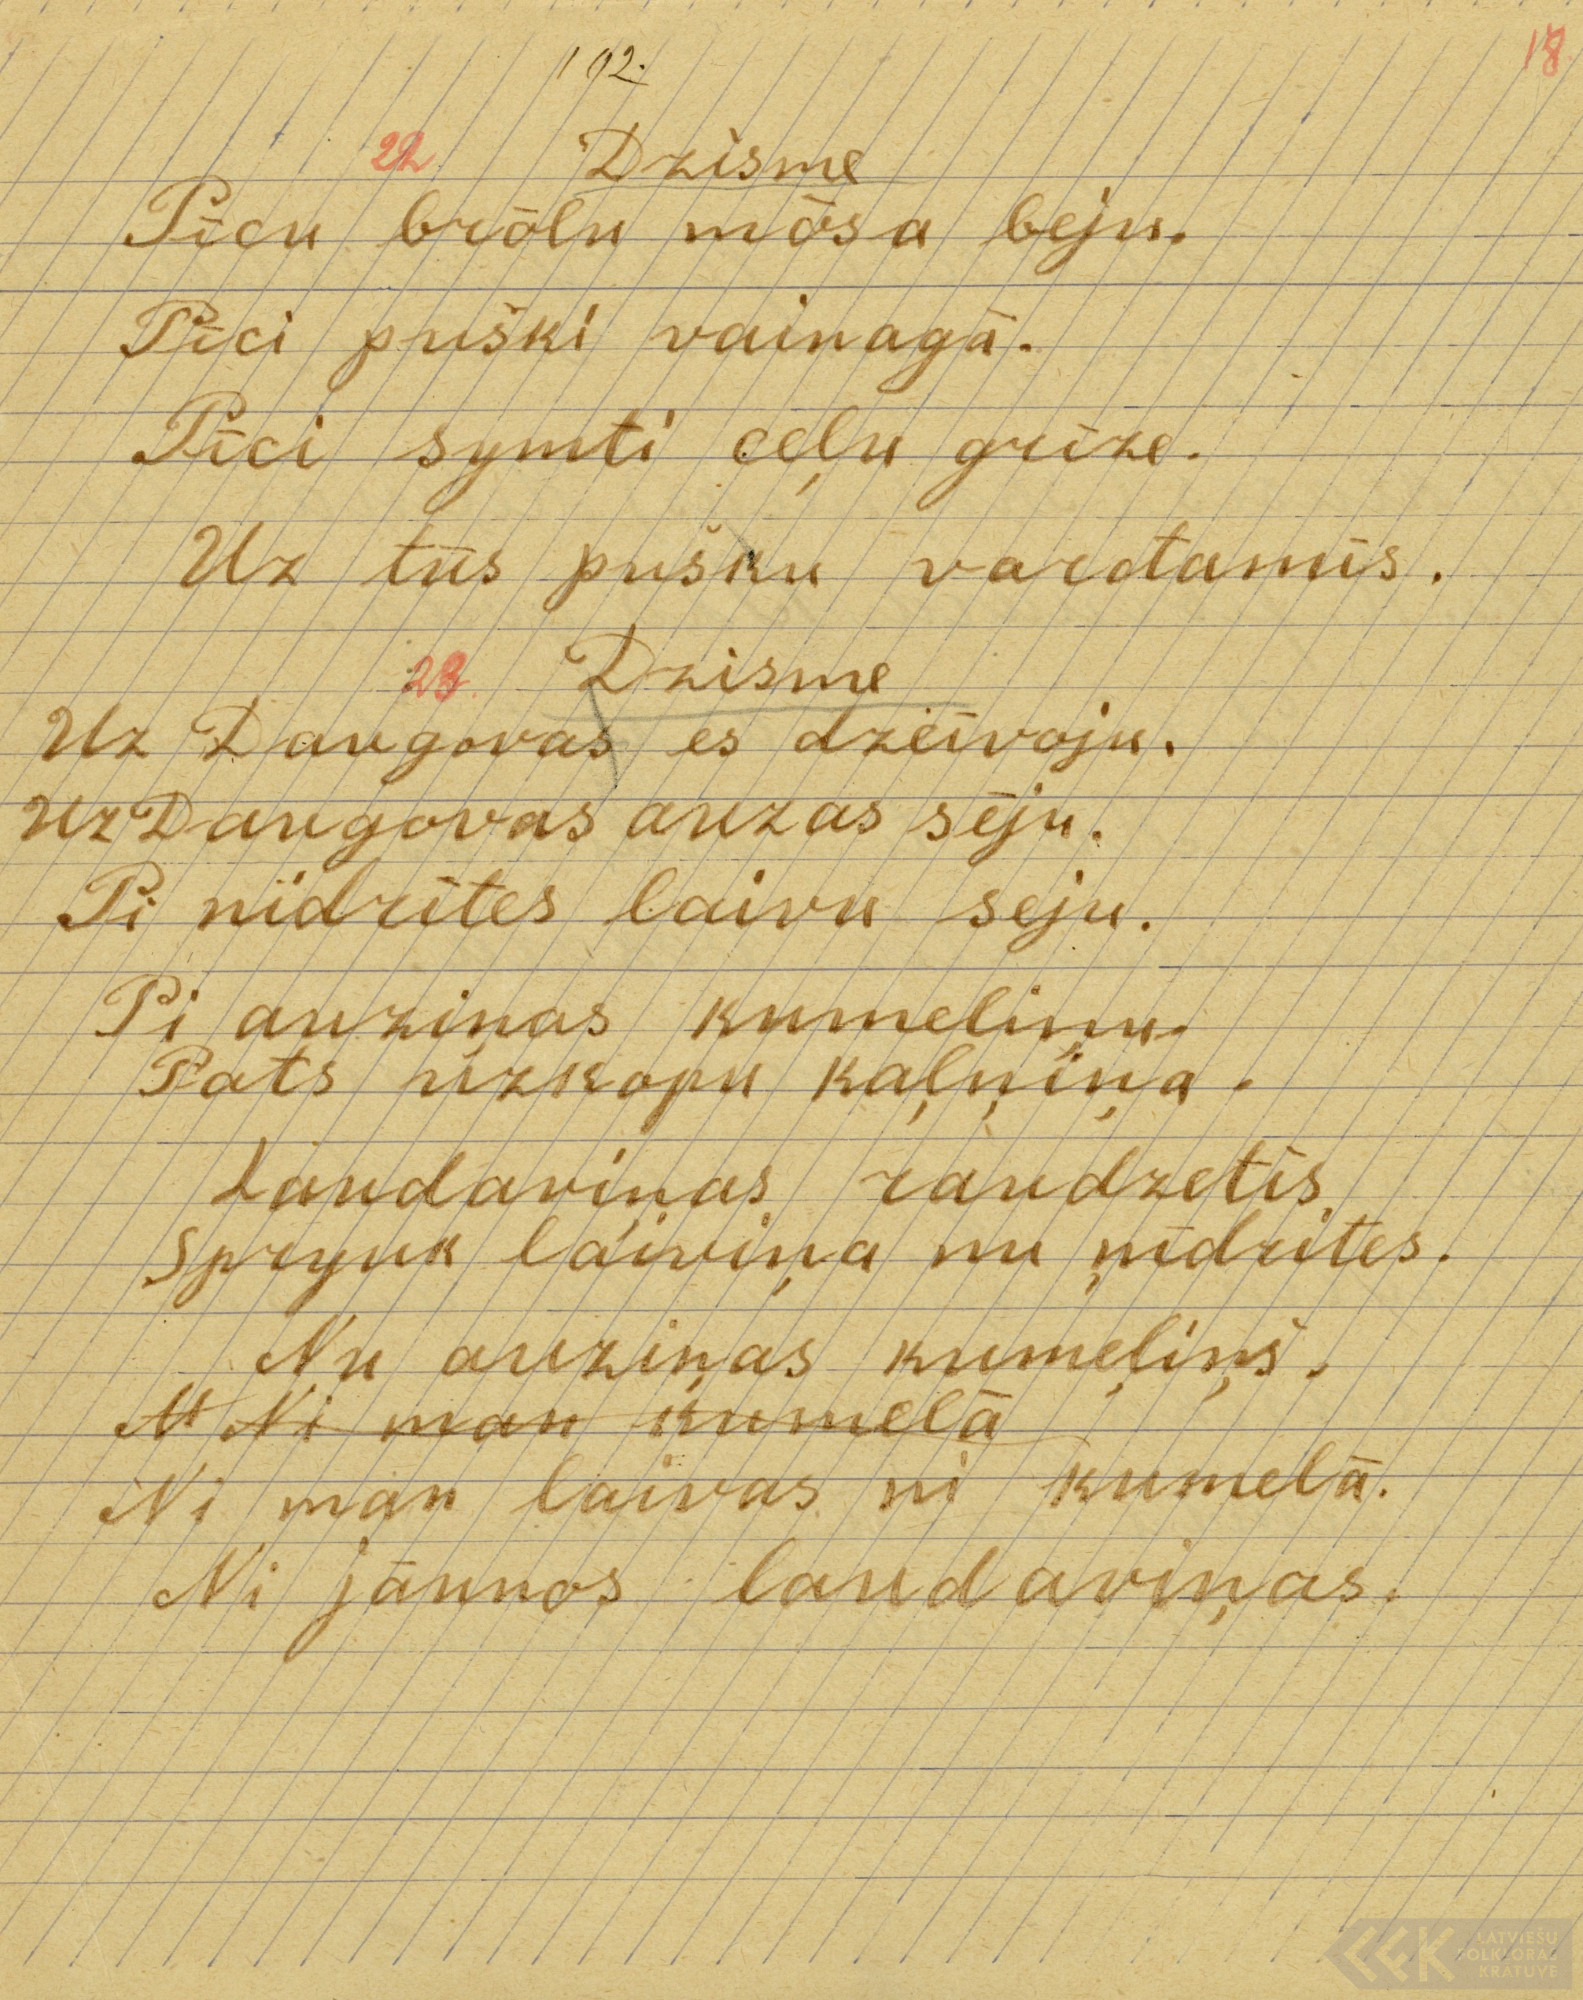 192.
18
22. Dzisme
Pīcu brōlu mōsa beju.
Pīci puški vainagā.
Pīci symti ceļu grīze.
Uz tūs pušku vardamīs.
23. Dzisme
Uz Daugovas es dzeivoju.
Uz Daugovas auzas sēju.
Pi nīdrītes laivu seju.
Pi auziņas kumeliņu.
Pats ūzkopu kaļņiņa.
Laudaviņas raudzetīs,
Spryuk laiviņa nu ņīdrites.
Nu auziņas kumeļiņš.
Ni man kumelā
Ni man laivas ni kumelā.
Ni jāunos laudaviņas.
LATVIEŠU
FOLKLORAS
KRĀTUVE